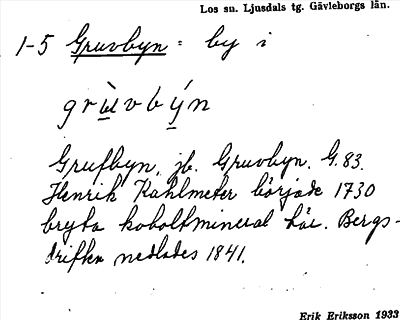 Los sn. Ljusdals tg. Gävleborgs län.
1-5 Gruvbyn = by i
grùvbýn
Grufbyn, jb. Gruvbyn. G.83.
Henrik Kahlmeter började 1730
bryta koboltmineral här. Bergs-
driften nedlades 1841.
Erik Eriksson 1933